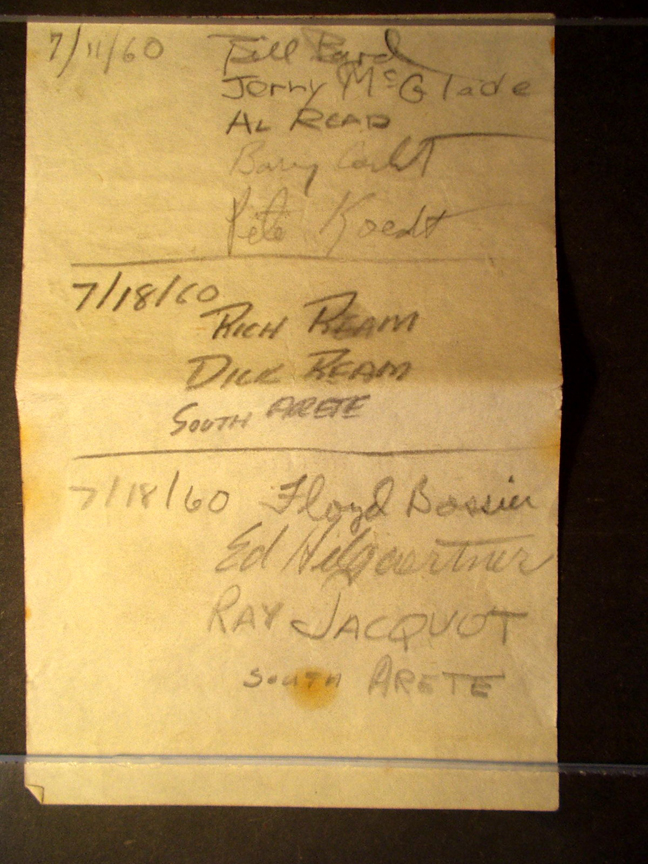 7/11/60 Bill Bard
Jerry McGlade
AL READ
Barry
Pete Koedt
7/18/60
RICH REAM
DICK REAM
SOUTH ARETE
7/18/60 Floyd Bossier
Ed Hilgaertner
RAY JACQUOT
SOUTH ARETE